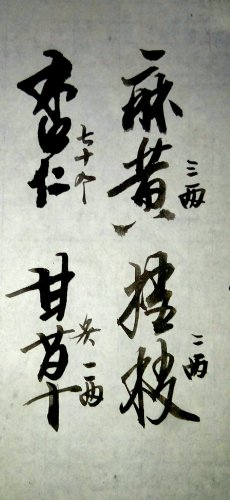 麻黄三两
桂枝二两
杏仁七十个
甘草炙一两